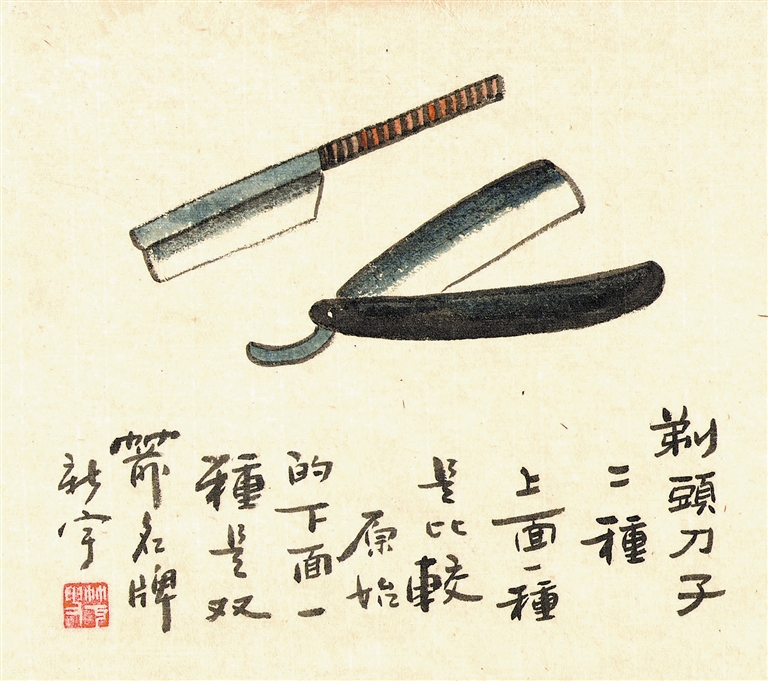 剃頭刀子
二種
上面一種
是比較
原始
的下面一
種是双
箭名牌
新宇